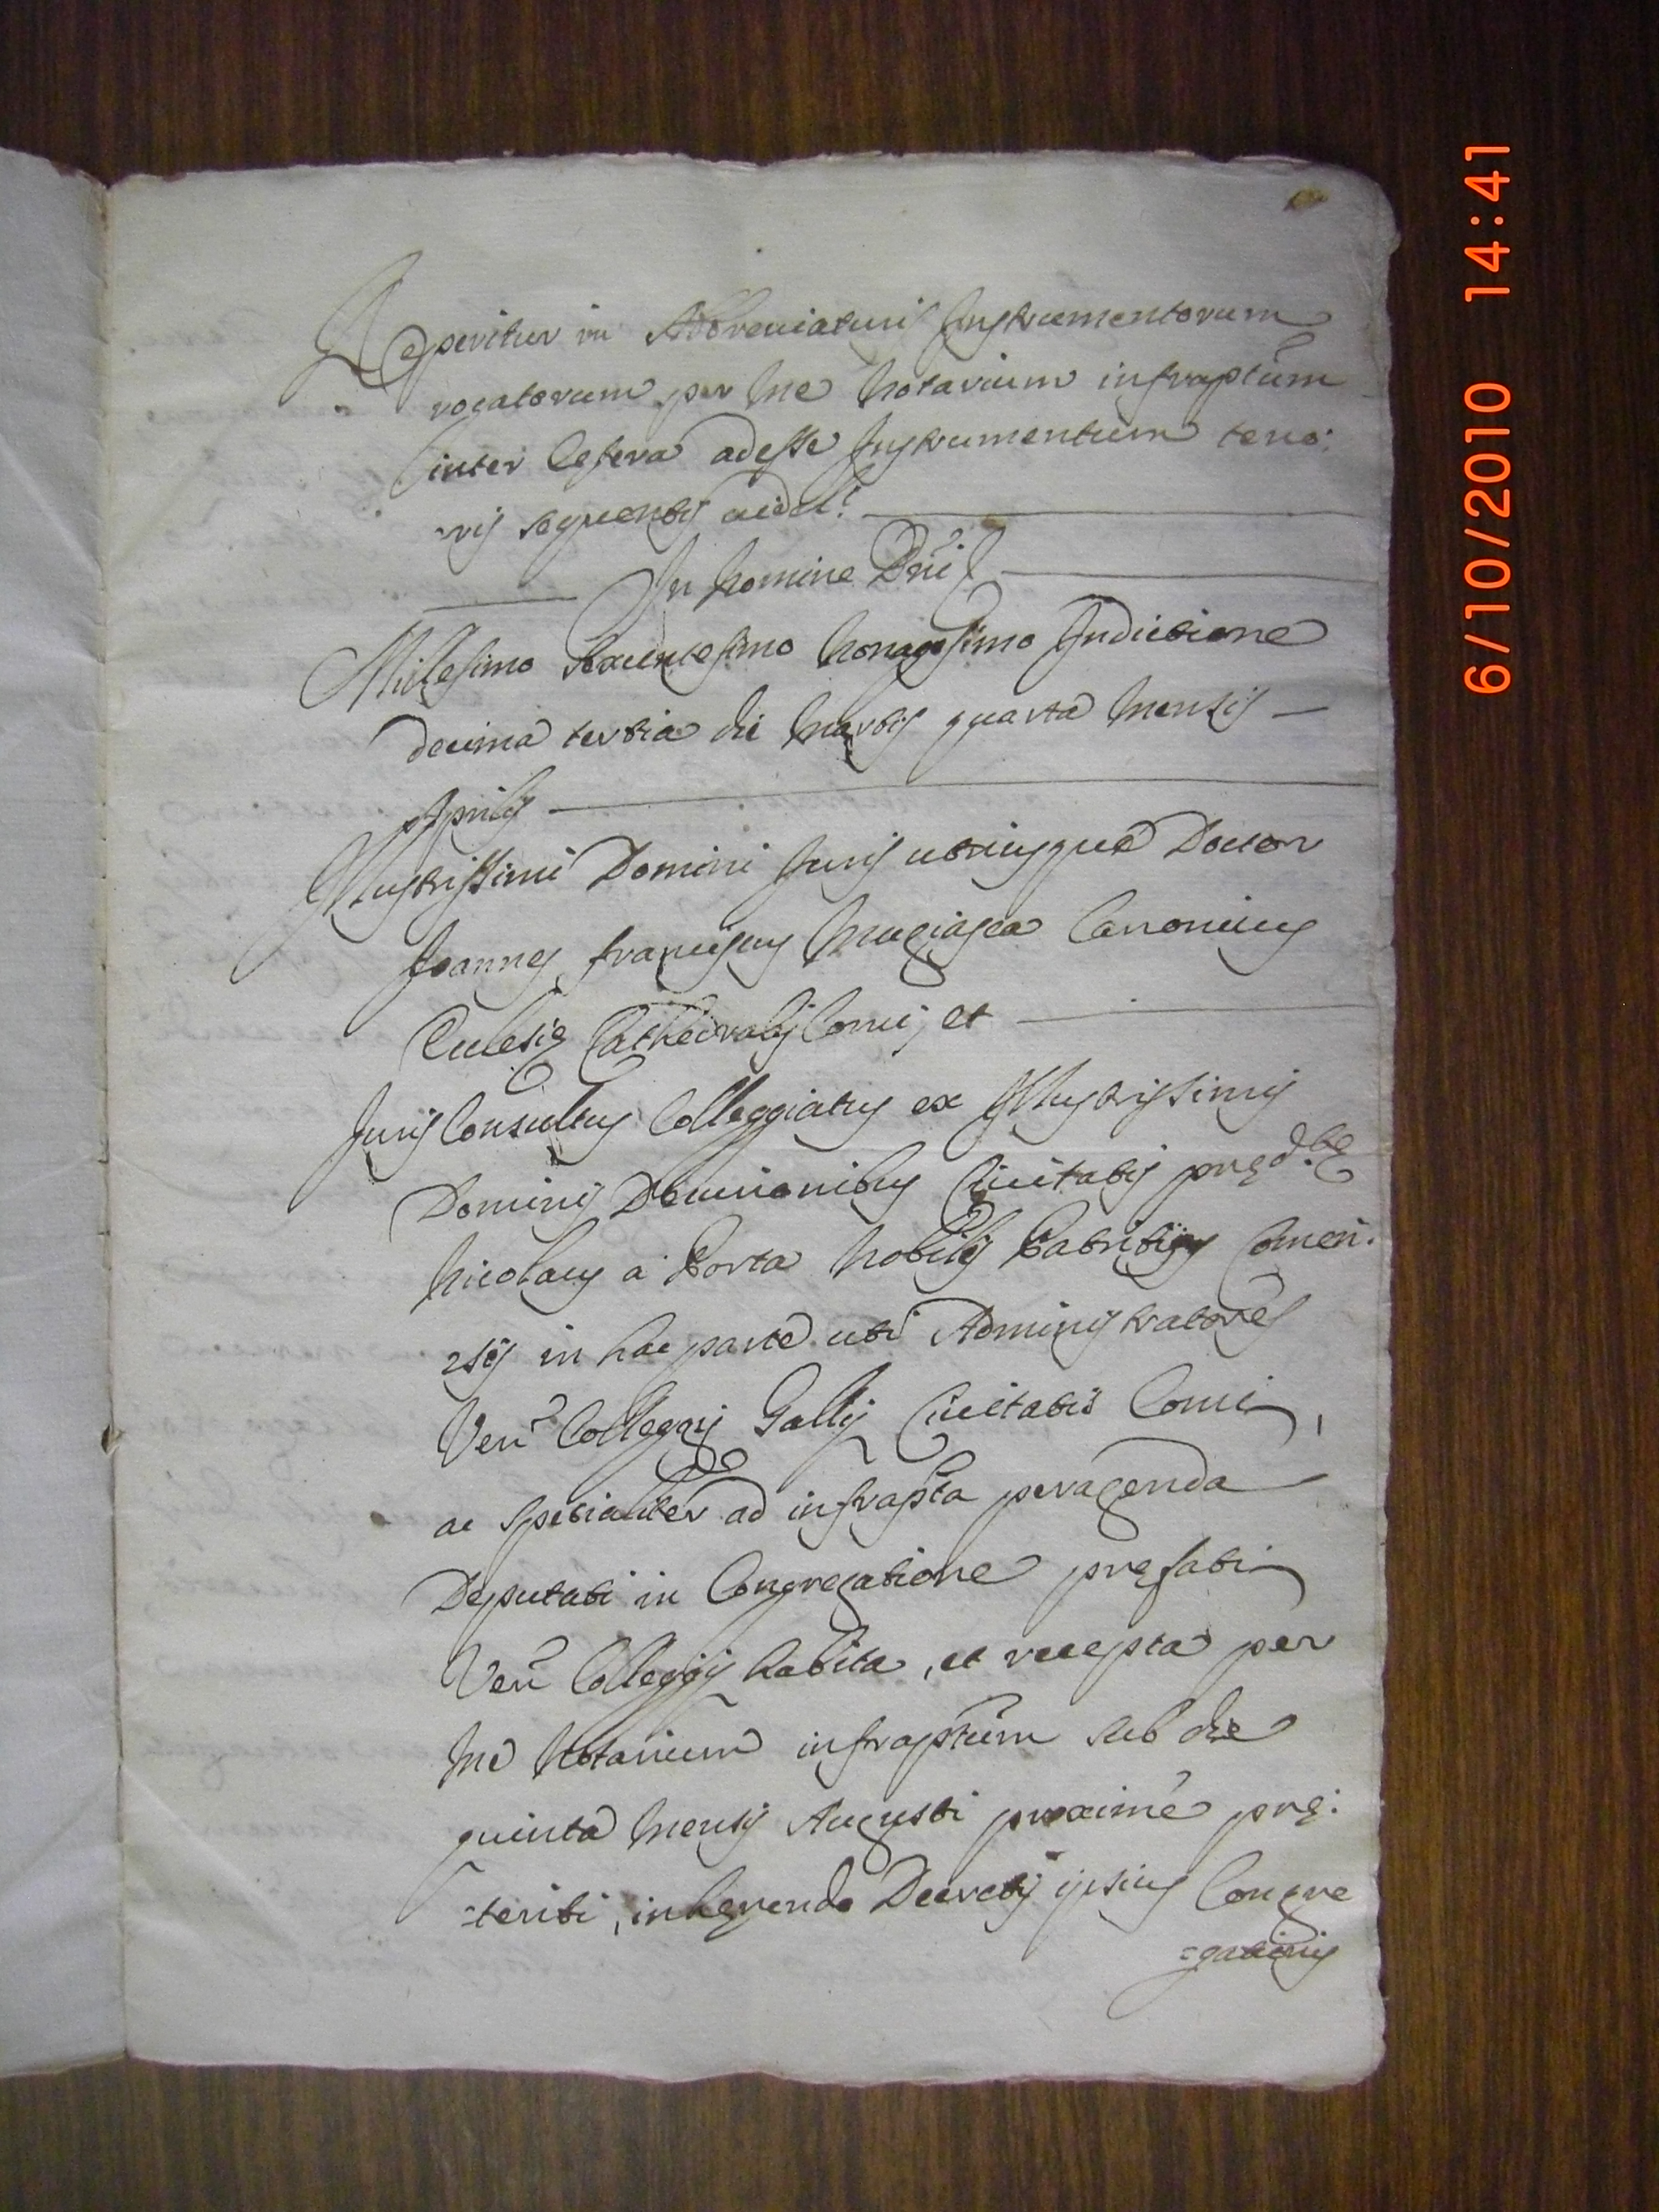 Reperitur in Abbreuiaturis Instrumentorum
rogatorum per me Notarium infraptum
inter Cetera adesse Instrumentum teno:
ris sequentis uidel.t
In Nomine Dni
Millesimo Sexcentesimo Nonagesimo Indictione
decima tertia die Martis quarta Mensis
Aprilis
Illustrissimi Domini Juris utriusque Doctor
Joannes Franciscus Mugiasca Canonicus
Ecclesię Cathedralis Comi, et
Juris Consultus Colleggiatus ex Illustrissimis
Dominis Decurionibus Ciuitatis pręd.tę
Nicolaus a Porta Nobilis Patritius Comen:
sis in hac parte uti Administratores
Ven. Colleggij Gallij Ciuitatis Comi,
ac Spetialiter ad infrapta peragenda
Deputati in Congregatione pręfati
Ven. Colleggij habita, et recepta per
me Notarium infraptum sub die
quinta Mensis Augusti proximè prę:
teriti, inherendo Decretis ipsius Congre
=gationis
6/10/2010 14:41